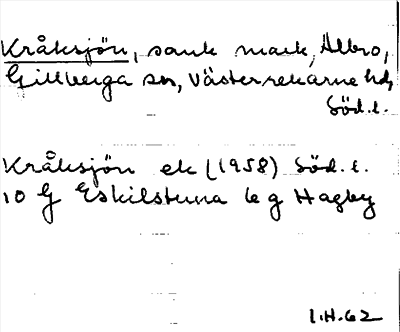 Kråksjön, sank mark, Älbro,
Gillberga sn, Västerrekarne hd,
Söd. l.
Kråksjön ek (1958) Söd. l.
10 G Eskilstuna 6 g Hagby
I.H. 62